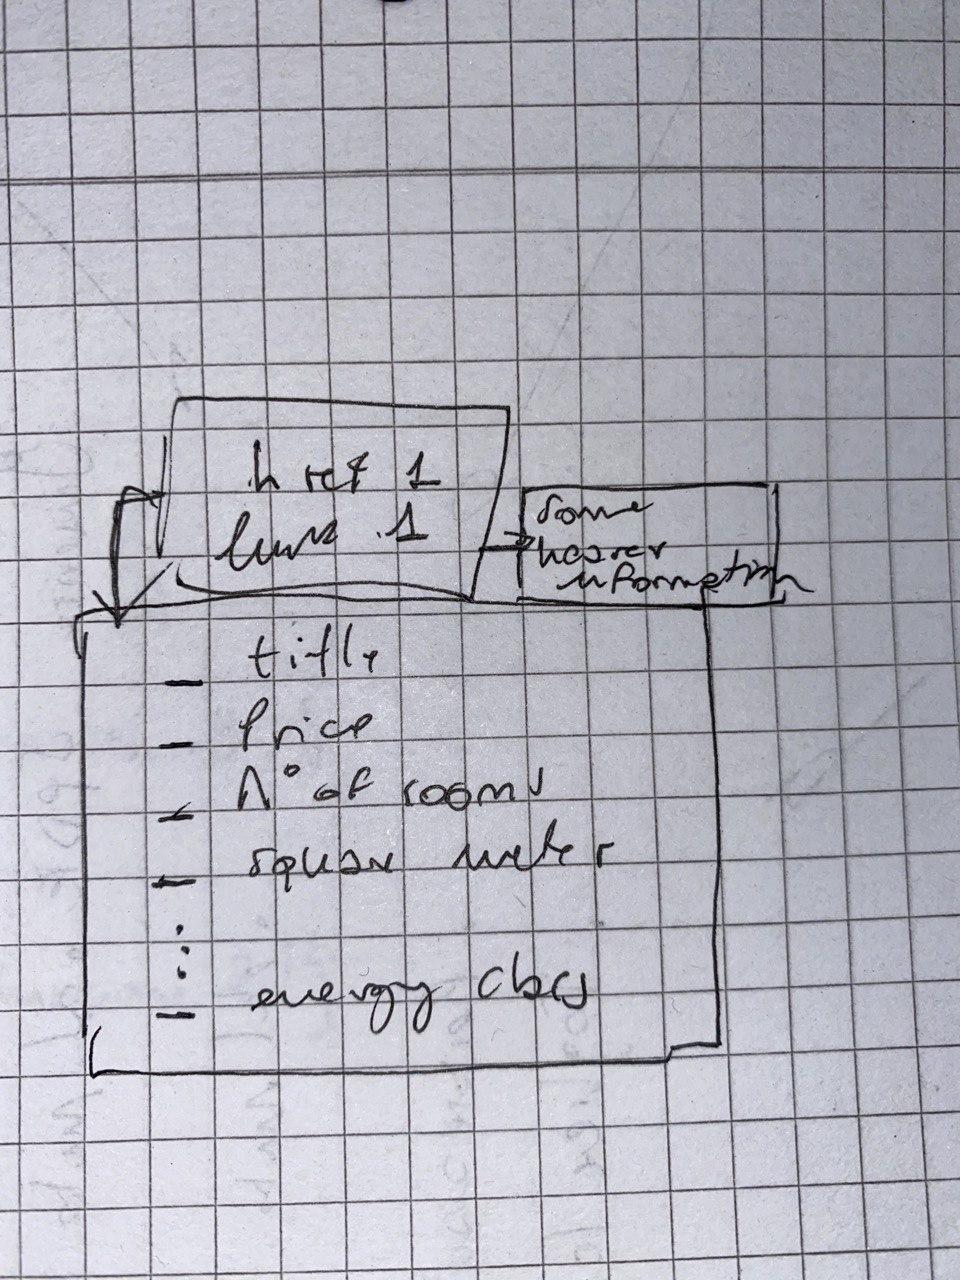 href 1
link 1
Some
header
information
– title
– Price
– N° of rooms
– square meter
⋮
– energy class